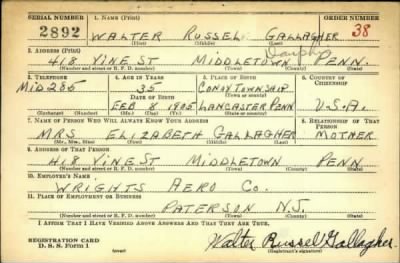 SERIAL NUMBER 1. NAME (Print) ORDER NUMBER
2892 WALTER RUSSEL GALLAGHER 38
(First) (Middle) (Last)
2. ADDRESS (Print) Dauphin
418 VINE ST MIDDLETOWN PENN.
(Number and street or R. F. D. number) (Town) (County) (State)
3. TELEPHONE 4. AGE IN YEARS 5. PLACE OF BIRTH 6. COUNTRY OF CITIZENSHIP
MID 285 35 CONOY TOWNSHIP
DATE OF BIRTH (Town or county)
FEB 8 1905 LANCASTER PENN U.S.A.
(Exchange) (Number) (Mo.) (Day) (Yr.) (State or country)
7. NAME OF PERSON WHO WILL ALWAYS KNOW YOUR ADDRESS 8. RELATIONSHIP OF THAT PERSON
MRS ELIZABETH GALLAGHER MOTHER
(Mr., Mrs., Miss) (First) (Middle) (Last)
9. ADDRESS OF THAT PERSON
418 VINE ST MIDDLETOWN PENN
(Number and street or R. F. D. number) (Town) (County) (State)
10. EMPLOYER'S NAME
WRIGHTS AERO CO.
11. PLACE OF EMPLOYMENT OR BUSINESS
PATERSON N.J.
(Number and street or R. F. D. number) (Town) (County) (State)
I AFFIRM THAT I HAVE VERIFIED ABOVE ANSWERS AND THAT THEY ARE TRUE.
REGISTRATION CARD
D. S. S. Form 1 (over) Walter Russel Gallagher
(Registrant's signature)